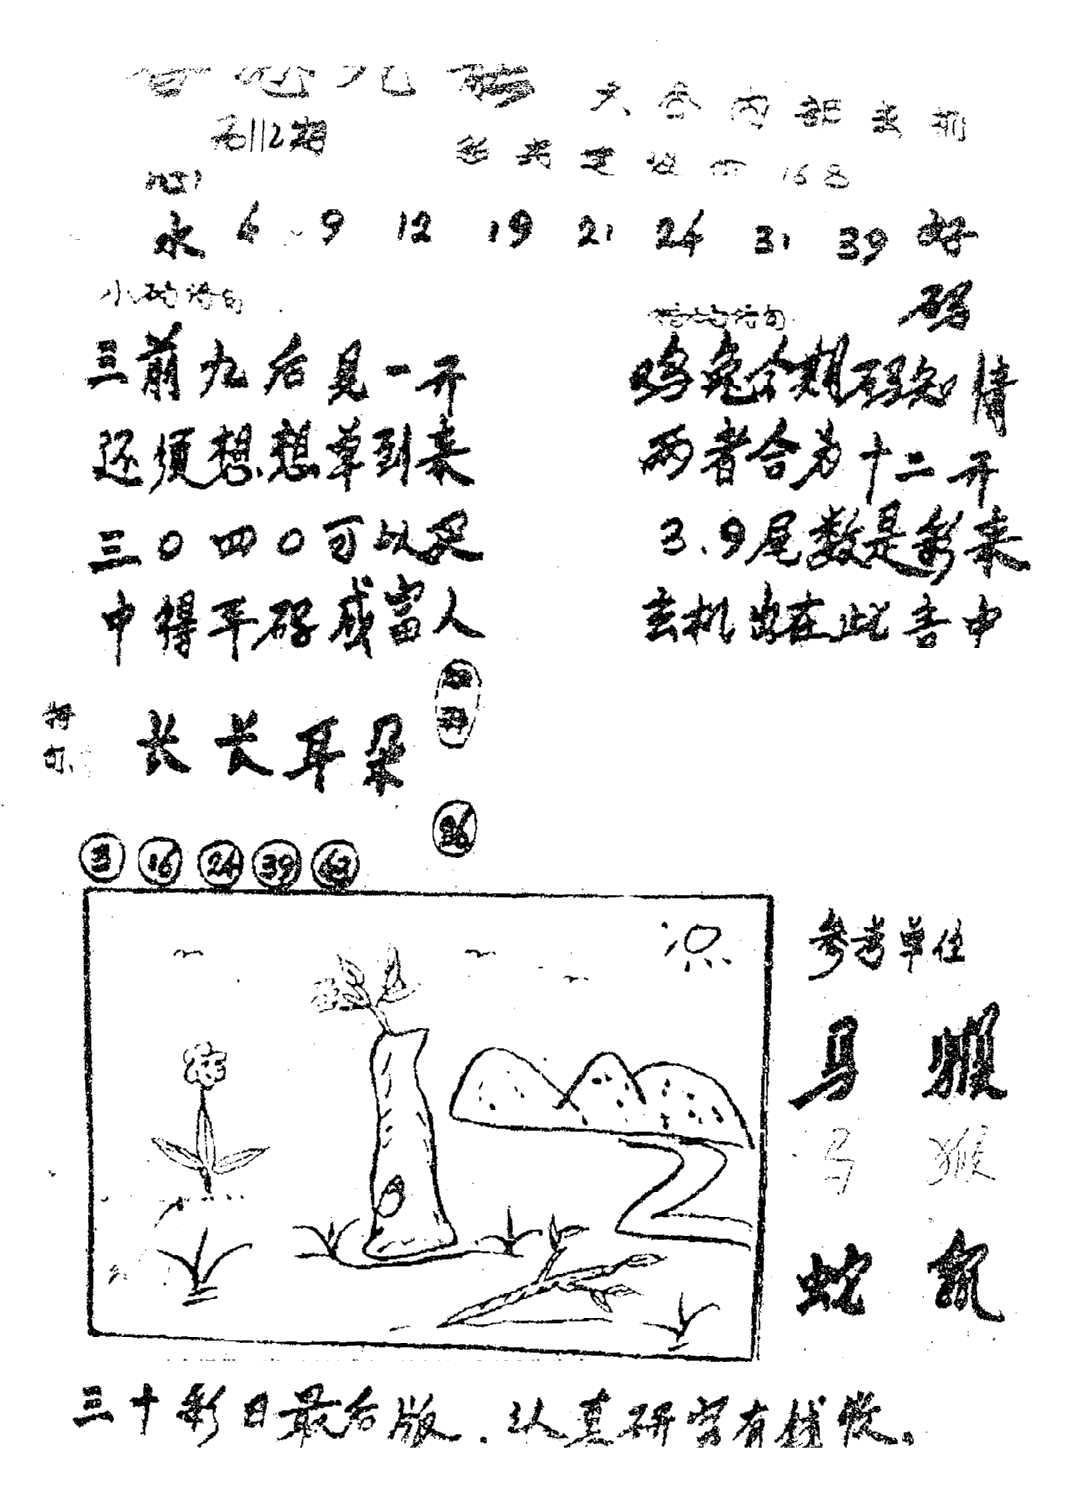 第112期
六合内部玄机
168
水 6 9 12 19 21 24 31 39 好
码
小码诗句
三前九后见一开
还须想想单到来
三0四0可以买
中得平码成富人
特码诗句
鸡兔今期码知情
两者合为十二开
3.9尾数是彩来
玄机出在此言中
特
句
长长耳朵
36
3 16 24 39 43
参考单位
马 猴
马 猴
蛇 鼠
三十彩日最后版.认真研字有钱收。